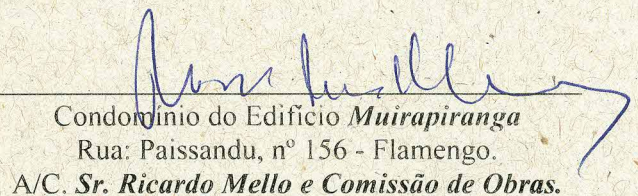 Condomínio do Edifício Muirapiranga
Rua: Paissandu, nº 156 - Flamengo.
A/C. Sr. Ricardo Mello e Comissão de Obras.